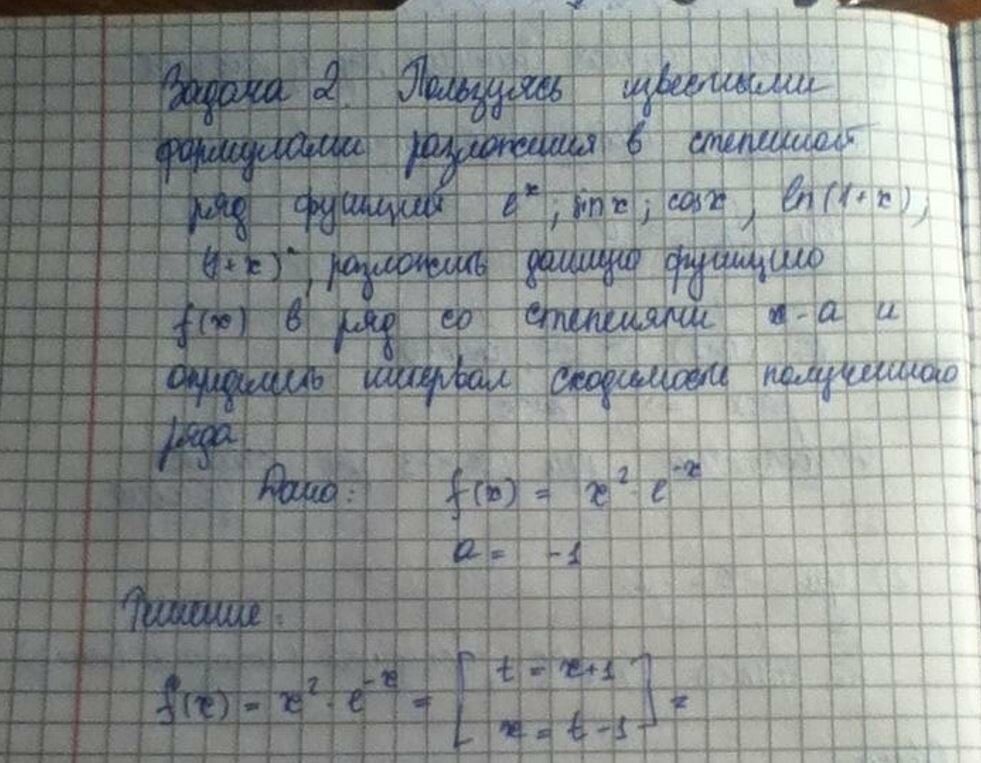 Задача 2. Пользуясь известными
формулами разложения в степенной
ряд функций e^x, sin x; cos x, ln(1+x);
(1+x)^n, разложить данную функцию
f(x) в ряд со степенями x-a и
определить интервал сходимости полученного
ряда
Дано: f(x) = x² · e^-x
a = -1
Решение:
f(x) = x² · e^-x = [ t = x+1
x = t-1 ] =